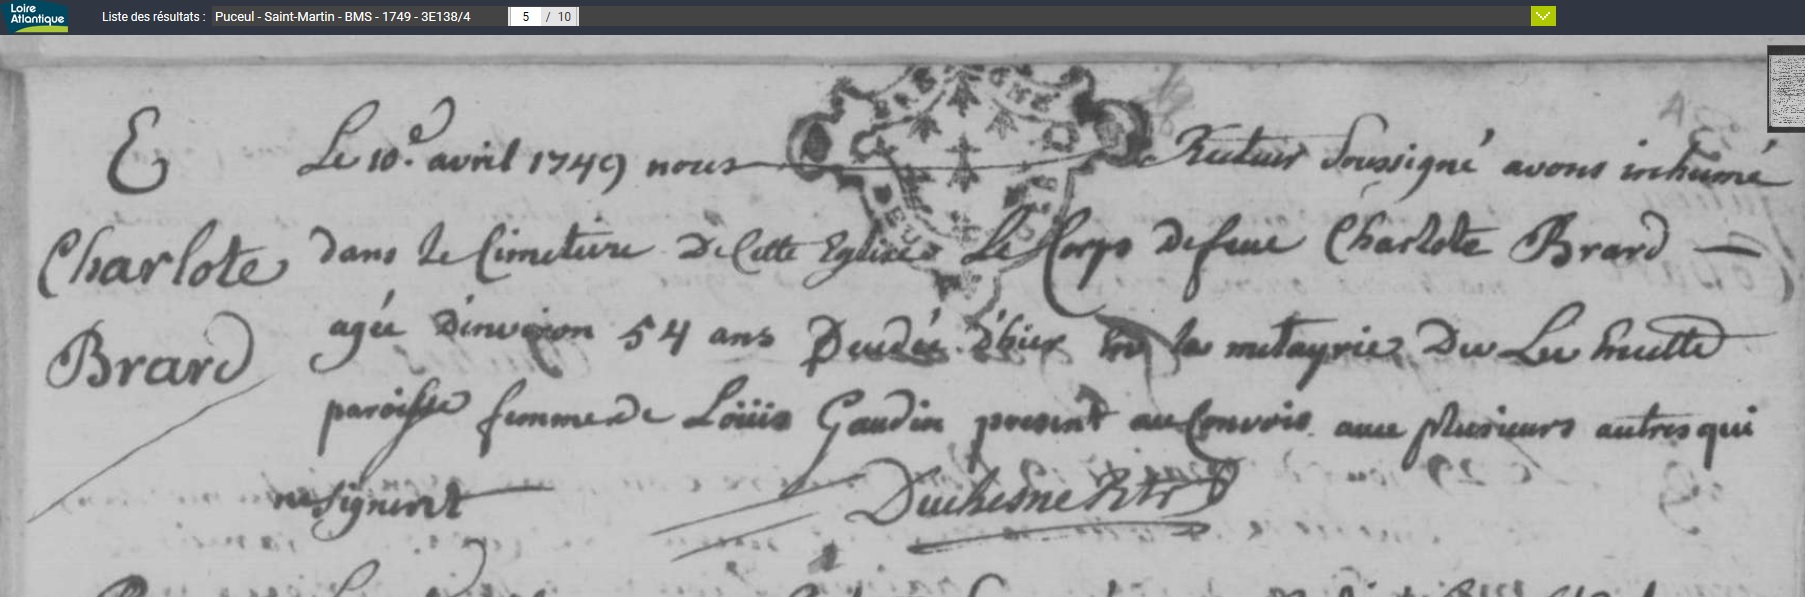 Loire Atlantique
Liste des résultats : Puceul - Saint-Martin - BMS - 1749 - 3E138/4 5 / 10
E
Charlote
Brard
Le 10.e avril 1749 nous Recteur Soussigné avons inhumé
dans le Cimetiere De Cette Eglise Le Corps de feue Charlote Brard
agée D'environ 54 ans Decedée d'hier la metayrie Du
paroisse femme de Loüis Gaudin present au Convois avec plusieurs autres qui
ne signent
Duchesne Rtr